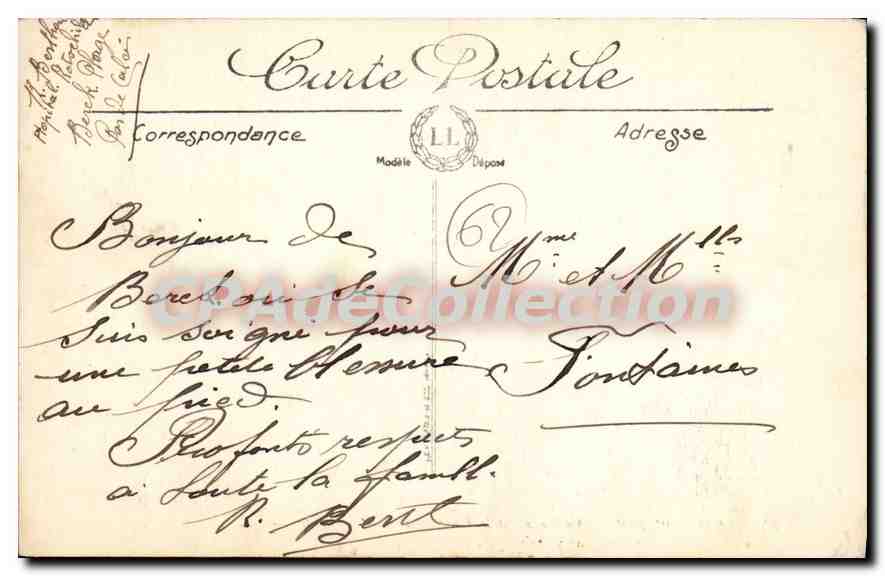 R. Berth
Hôpital Rotschild
Berck Plage
Pas de Calais
Carte Postale
Correspondance
LL
Modèle Déposé
Adresse
62
Bonjour de
Berck où je
suis soigné pour
une petite blessure
au pied.
Profonts respects
à toute la famill.
R. Bert
Mme et Mlls
Fontaines
CPAdeCollection